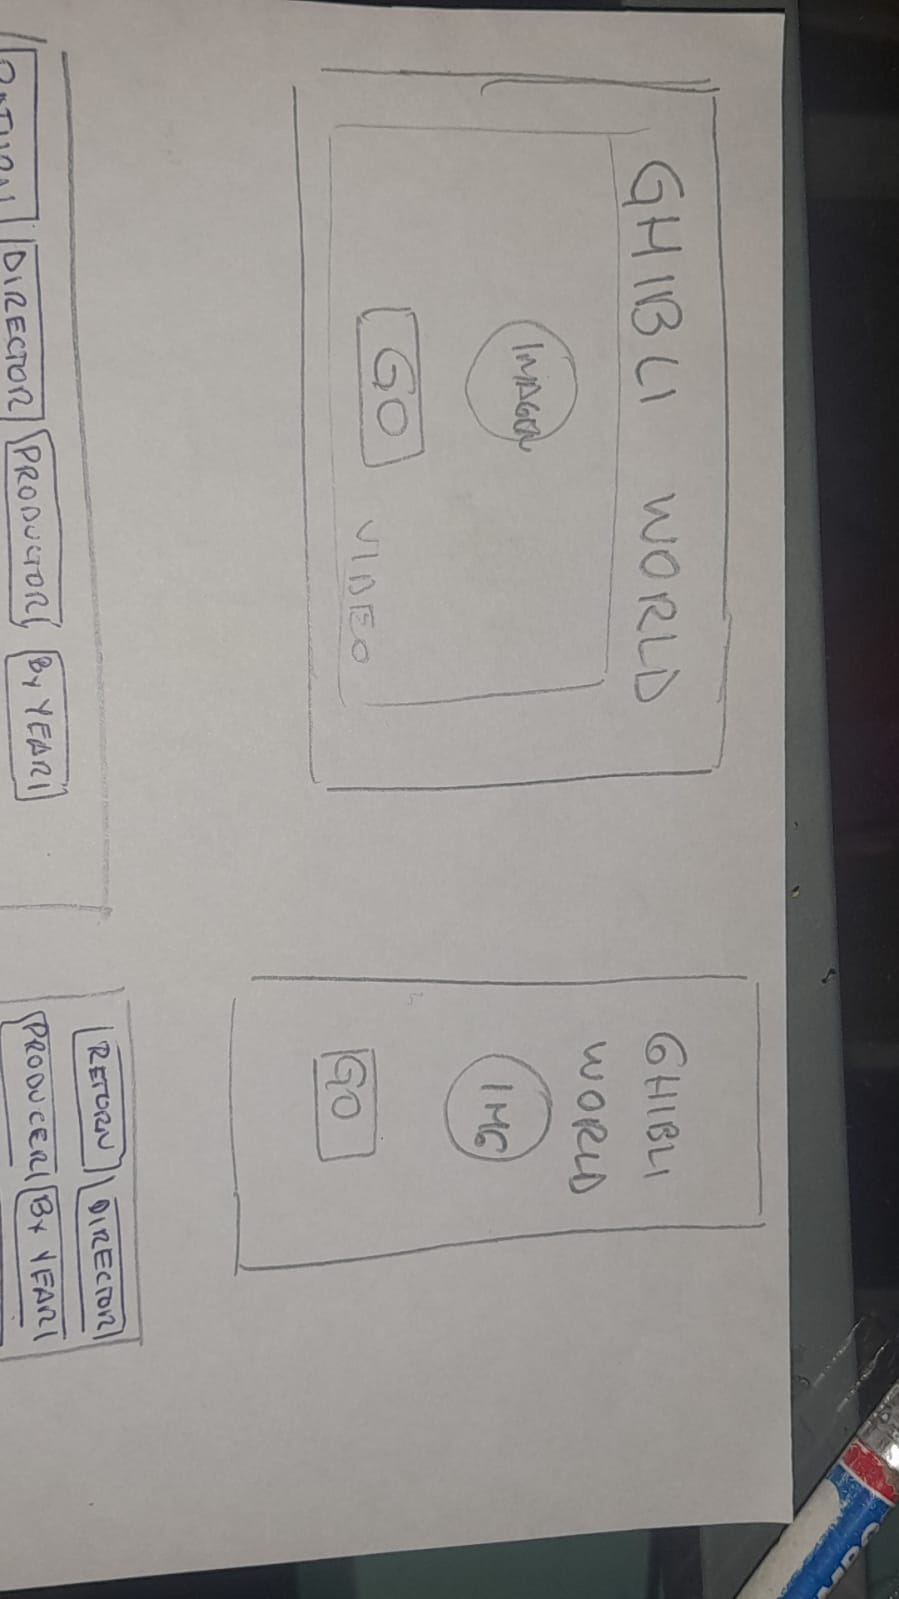 GHIBLI WORLD
IMAGEN
GO
VIDEO
GHIBLI
WORLD
IMG
GO
DIRECTOR PRODUCTOR BY YEAR
RETORN DIRECTOR
PRODUCER BY YEAR